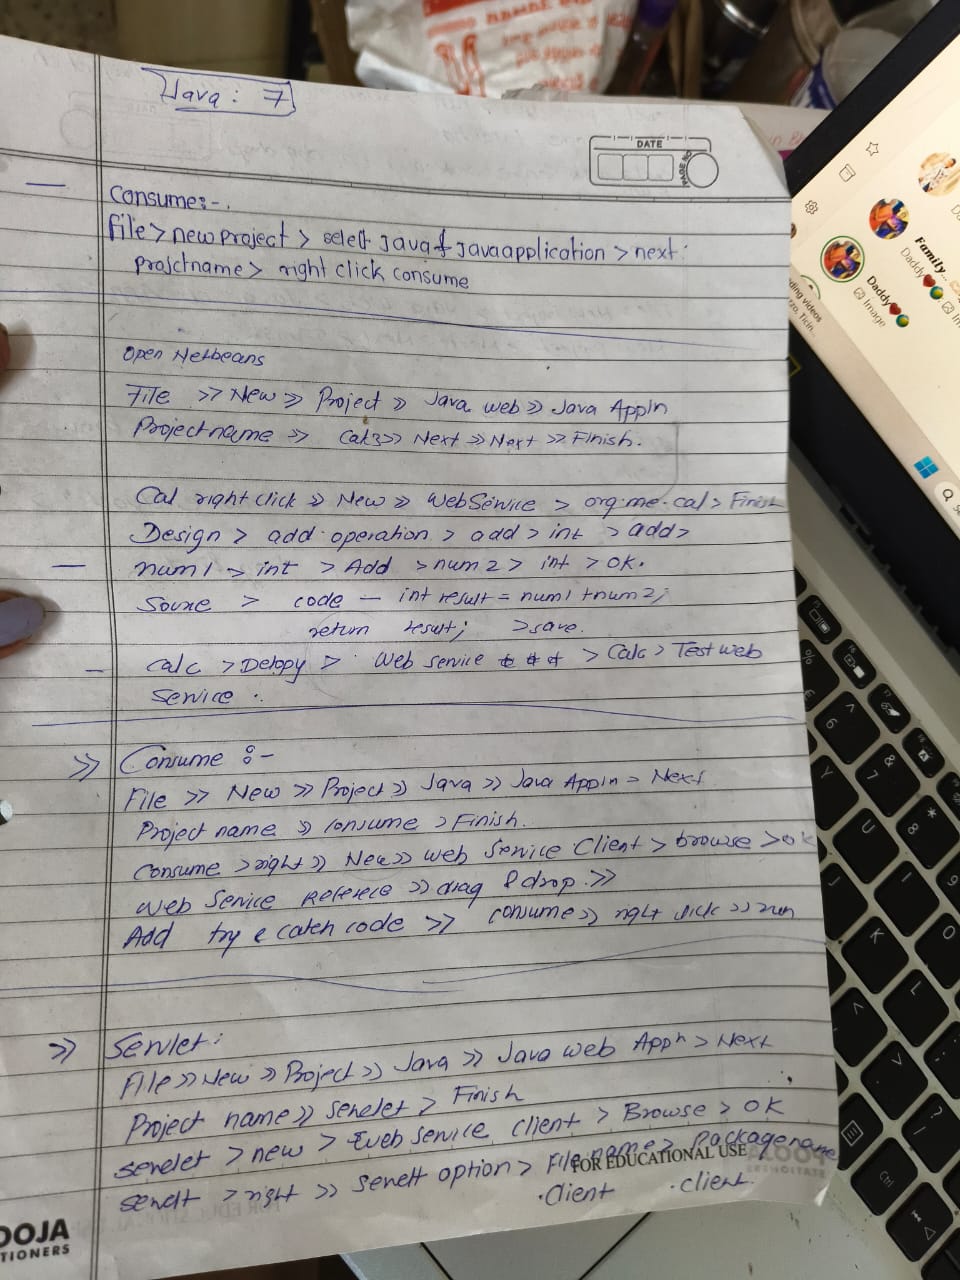 Java: 7
DATE
PAGE NO
Consume:-.
File > new project > select java & javaapplication > next
projctname > right click consume
Open Netbeans
File >> New >> Project >> Java web >> Java Appln
Project name >> Cal3 >> Next >> Next >> Finish.
Cal right click >> New >> WebService > org.me.cal > Finish
Design > add operation > add > int > add >
num1 > int > Add > num2 > int > OK.
Source > code — int result = num1 + num2;
return result; > save.
calc > Delopy > Web service > Calc > Test web
Service.
>> Consume :-
File >> New >> Project >> Java >> Java Appln > Next
Project name >> consume > Finish.
Consume > right >> New >> web Service Client > browse > ok
Web Service Referece >> drag & drop >>
Add try & catch code >> consume >> right click >> run
>> Servlet:
File >> New >> Project >> Java >> Java web Appn > Next
Project name >> servlet > Finish
servelet > new > web service client > Browse > OK
servlt > right >> servlt option > File name > Packagename
.client .client.
FOR EDUCATIONAL USE
OOJA
TIONERS
Family...
Daddy
Daddy
Image